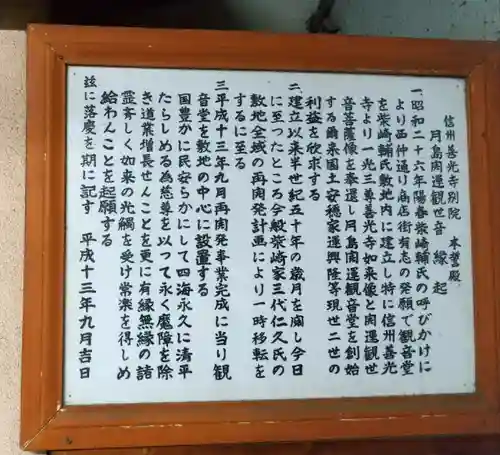 信州善光寺別院　本誓殿
月島開運観世音　縁起
一、昭和二十六年陽春柴崎輔氏の呼びかけに
より西仲通り商店街有志の発願で観音堂
を柴崎輔氏敷地内に建立し特に信州善光
寺より一光三尊善光寺如来像と開運観世
音菩薩像を奉還し月島開運観音堂を創始
する爾来国土安穏家運興隆等現世二世の
利益を欣求する
二、建立以来半世紀五十年の歳月を閲し今日
に至ったところ今般柴崎家三代仁久氏の
敷地全域の再開発計画により一時移転を
するに至る
三平成十三年九月再開発事業完成に当り観
音堂を敷地の中心に設置する
国豊かに民安らかにして四海永久に清平
たらしめる為慈尊を以って永く魔障を除
き道業増長せんことを更に有縁無縁の諸
霊斉しく如来の光觸を受け常楽を得しめ
給わんことを起願する
茲に落慶を期に記す　平成十三年九月吉日